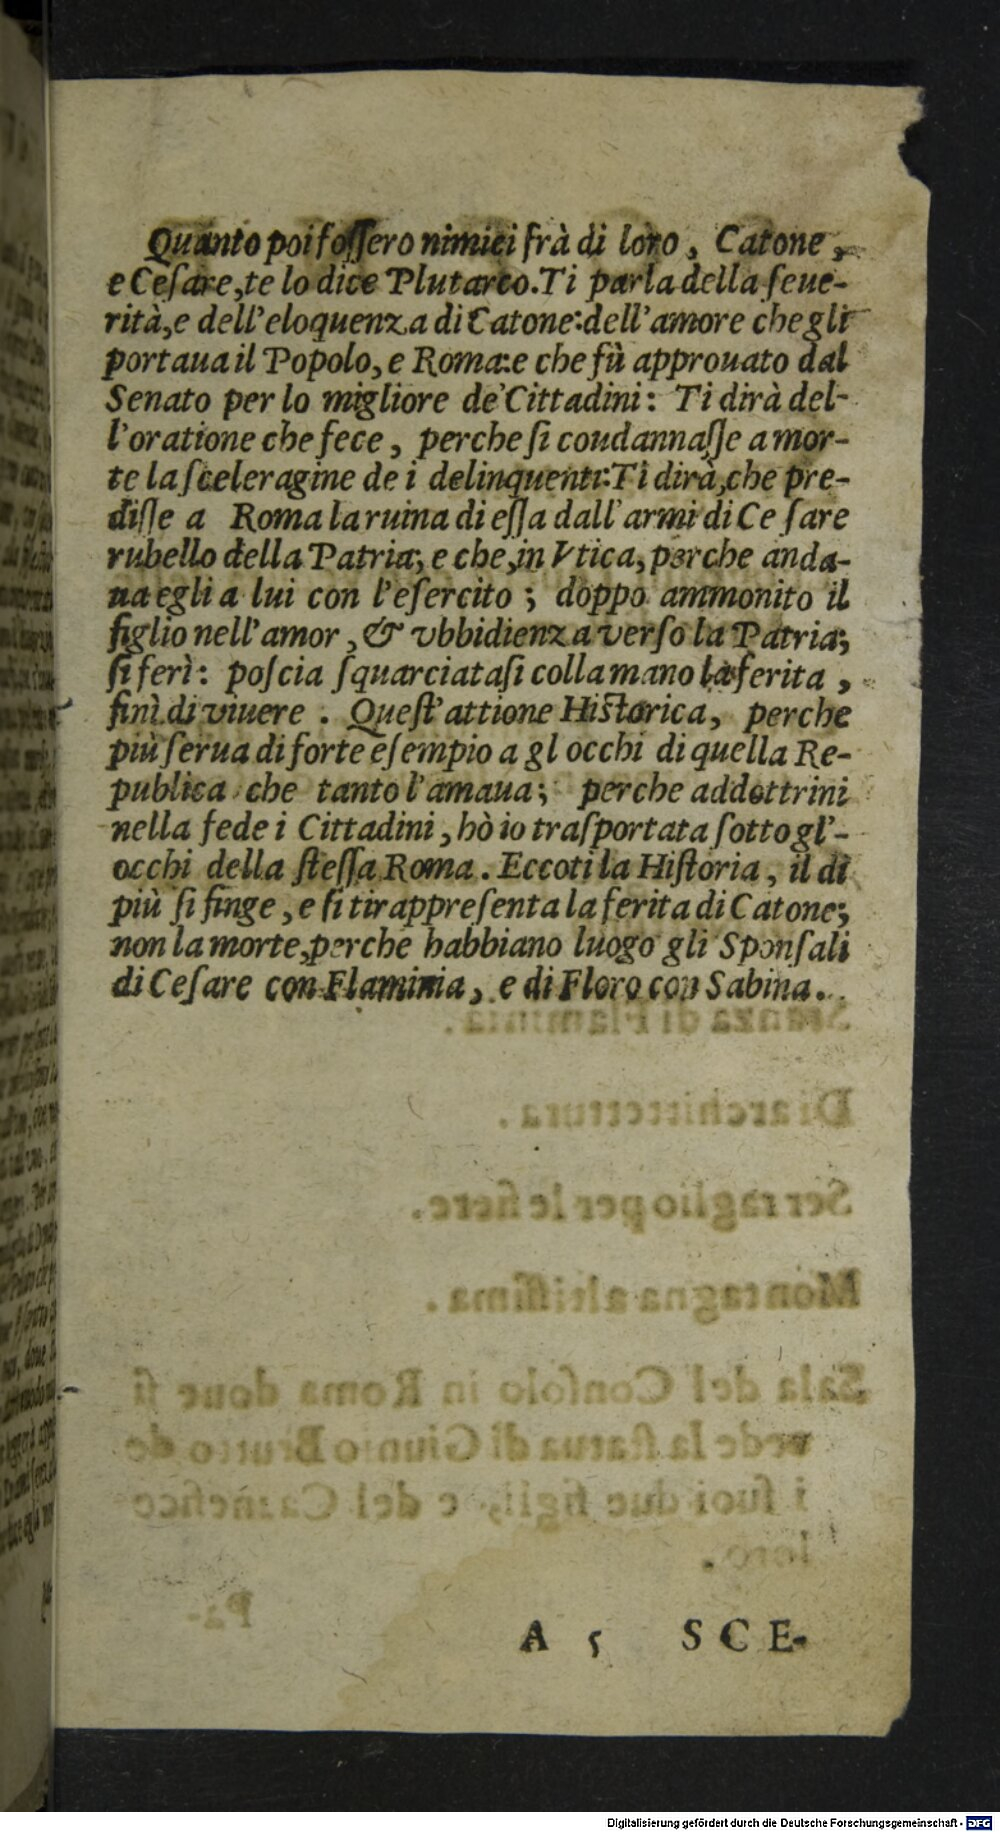 Quanto poi foſſero nimici frà di loro, Catone,
e Ceſare, te lo dice Plutarco. Ti parla della ſeue-
rità, e dell'eloquenza di Catone: dell'amore che gli
portaua il Popolo, e Roma: e che fù approuato dal
Senato per lo migliore de' Cittadini: Ti dirà del-
l'oratione che fece, perche ſi coudannaſſe a mor-
te la ſceleragine de i delinquenti: Ti dirà, che pre-
diſſe a Roma la ruina di eſſa dall'armi di Ceſare
rubello della Patria; e che, in Vtica, perche anda-
ua egli a lui con l'eſercito; doppo ammonito il
figlio nell'amor, & vbbidienza verſo la Patria;
ſi ferì: poſcia ſquarciataſi colla mano la ferita,
finì di viuere. Queſt'attione Hiſtorica, perche
più ſerua di forte eſempio a gl occhi di quella Re-
publica che tanto l'amaua; perche addottrini
nella fede i Cittadini, hò io traſportata ſotto gl'-
occhi della ſteſſa Roma. Eccoti la Hiſtoria, il di
più ſi finge, e ſi ti rappreſenta la ferita di Catone;
non la morte, perche habbiano luogo gli Sponſali
di Ceſare con Flaminia, e di Floro con Sabina.
A 5 SCE-
Digitalisierung gefördert durch die Deutsche Forschungsgemeinschaft - DFG